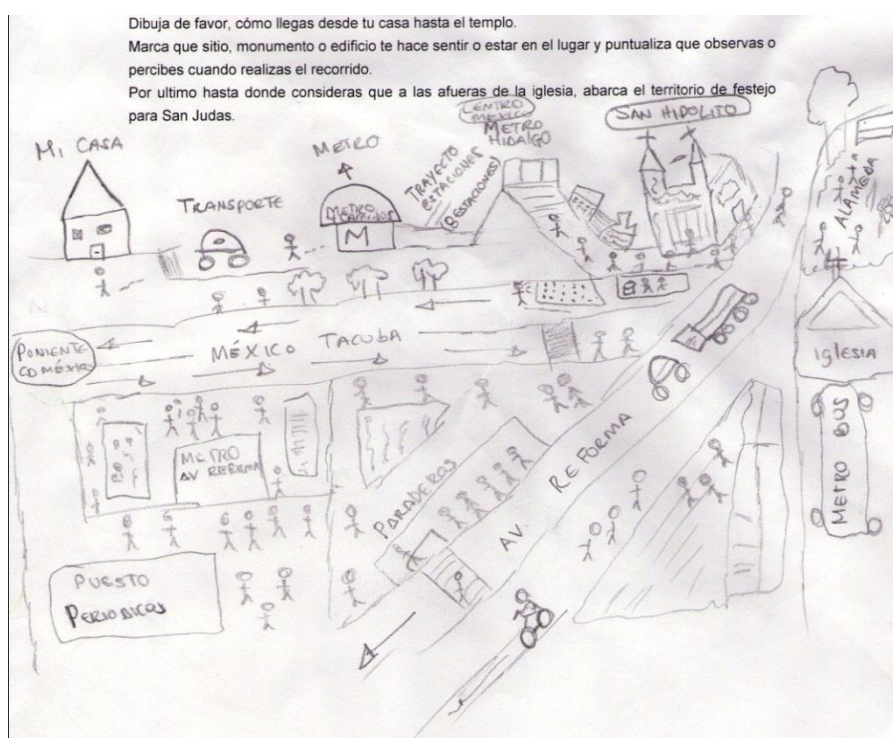 Dibuja de favor, cómo llegas desde tu casa hasta el templo.
Marca que sitio, monumento o edificio te hace sentir o estar en el lugar y puntualiza que observas o
percibes cuando realizas el recorrido.
Por ultimo hasta donde consideras que a las afueras de la iglesia, abarca el territorio de festejo
para San Judas.
MI CASA
TRANSPORTE
METRO
METRO
M
TRAYECTO
ESTACIONES
(8 ESTACIONES)
CENTRO
MEXICO
METRO
HIDALGO
SAN HIPOLITO
ALAMEDA
PONIENTE
CD MÉXICO
MÉXICO TACUBA
IGLESIA
METRO BUS
METRO
AV REFORMA
PARADEROS
AV REFORMA
PUESTO
PERIODICOS